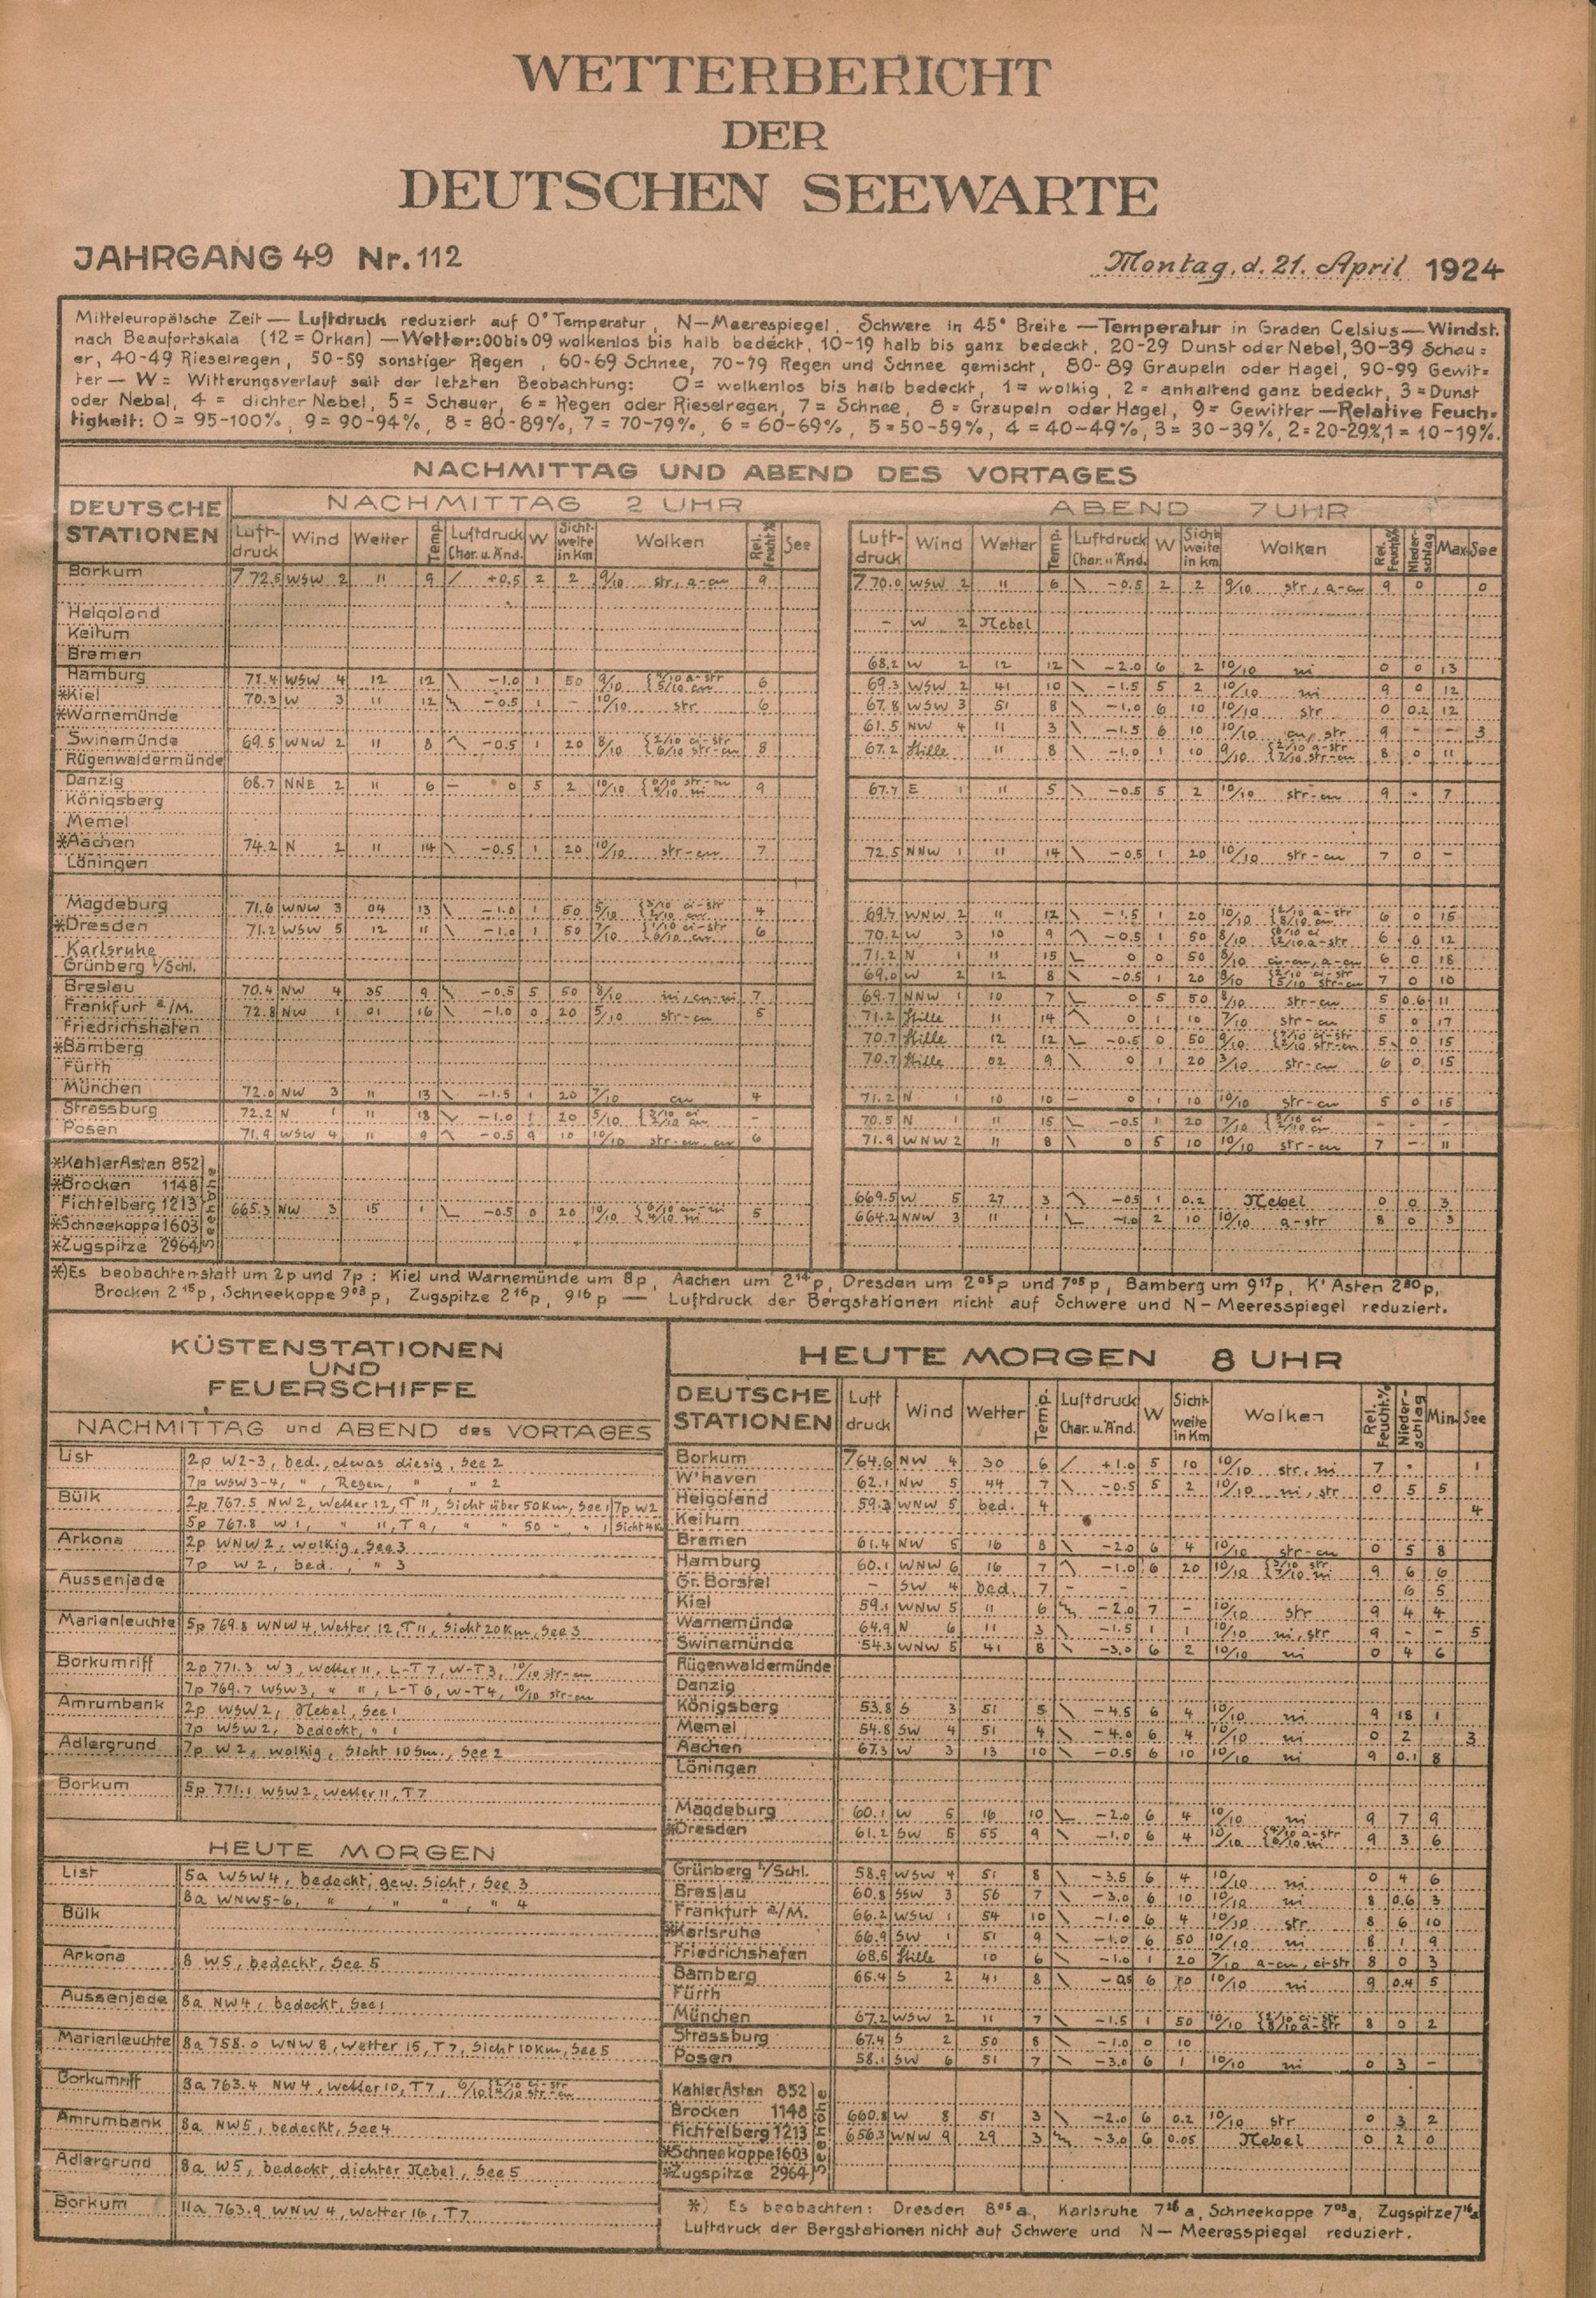 WETTERBERICHT
DER
DEUTSCHEN SEEWARTE
JAHRGANG 49 Nr. 112
Montag, d. 21. April 1924
Mitteleuropäische Zeit — Luftdruck reduziert auf 0° Temperatur, N—Meerespiegel, Schwere in 45° Breite — Temperatur in Graden Celsius — Windst.
nach Beaufortskala (12 = Orkan) — Wetter: 00 bis 09 wolkenlos bis halb bedeckt, 10-19 halb bis ganz bedeckt, 20-29 Dunst oder Nebel, 30-39 Schau=
er, 40-49 Rieselregen, 50-59 sonstiger Regen, 60-69 Schnee, 70-79 Regen und Schnee gemischt, 80-89 Graupeln oder Hagel, 90-99 Gewit=
ter — W = Witterungsverlauf seit der letzten Beobachtung: 0 = wolkenlos bis halb bedeckt, 1 = wolkig, 2 = anhaltend ganz bedeckt, 3 = Dunst
oder Nebel, 4 = dichter Nebel, 5 = Schauer, 6 = Regen oder Rieselregen, 7 = Schnee, 8 = Graupeln oder Hagel, 9 = Gewitter — Relative Feuch=
tigkeit: 0 = 95-100%, 9 = 90-94%, 8 = 80-89%, 7 = 70-79%, 6 = 60-69%, 5 = 50-59%, 4 = 40-49%, 3 = 30-39%, 2 = 20-29%, 1 = 10-19%.
NACHMITTAG UND ABEND DES VORTAGES
DEUTSCHE STATIONEN
NACHMITTAG 2 UHR
ABEND 7 UHR
Luftdruck Wind Wetter Temp. Luftdruck Char. u. Änd. W Sichtweite in Km Wolken Rel. Feucht.% See
Luftdruck Wind Wetter Temp. Luftdruck Char. u. Änd. W Sichtweite in Km Wolken Rel. Feucht.% Niederschlag Max See
Borkum 772.5 WSW 2 11 9 +0.5 2 2 9/10 str, a-cu 9 770.0 WSW 2 11 6 -0.5 2 2 9/10 str, a-cu 9 0 0
Helgoland - W 2 Nebel
Keitum
Bremen 68.2 W 2 12 12 -2.0 6 2 10/10 ni 0 0 13
Hamburg 71.4 WSW 4 12 12 -1.0 1 50 9/10 5/10 cu 6 69.3 WSW 2 41 10 -1.5 5 2 10/10 ni 9 0 12
*Kiel 70.3 W 3 11 12 -0.5 1 - 10/10 str 6 67.8 WSW 3 51 8 -1.0 6 10 10/10 str 0 0.2 12
*Warnemünde 61.5 NW 4 11 3 -1.5 6 10 10/10 cu, str 9 - - 3
Swinemünde 69.5 WNW 2 11 8 -0.5 1 20 8/10 2/10 ci-str 6/10 str-cu 8 67.2 Stille 11 8 -1.0 1 10 9/10 2/10 a-str 7/10 str-cu 8 0 11
Rügenwaldermünde
Danzig 68.7 NNE 2 11 6 — 0 5 2 10/10 9 67.7 E 1 11 5 -0.5 5 2 10/10 str-cu 9 • 7
Königsberg
Memel
*Aachen 74.2 N 2 11 14 -0.5 1 20 10/10 str-cu 7 72.5 NNW 1 11 14 -0.5 1 20 10/10 str-cu 7 0 -
Löningen
Magdeburg 71.6 WNW 3 04 13 -1.0 1 50 5/10 3/10 ci-str 2/10 cu 4 69.7 WNW 2 11 12 -1.5 1 20 10/10 2/10 a-str 8/10 cu 6 0 15
*Dresden 71.2 WSW 5 12 11 -1.0 1 50 7/10 1/10 ci-str 6/10 cu 6 70.2 W 3 10 9 -0.5 1 50 8/10 2/10 a-str 6 0 12
Karlsruhe 71.2 N 1 11 15 0 0 50 8/10 ci-cu, a-cu 6 0 18
Grünberg i/Schl. 69.0 W 2 12 8 -0.5 1 20 5/10 str-cu 7 0 10
Breslau 70.4 NW 4 35 9 -0.5 5 50 8/10 ni, cu-ni 7 69.7 NNW 1 10 7 0 5 50 8/10 str-cu 5 0.6 11
Frankfurt a/M. 72.8 NW 1 01 16 -1.0 0 20 5/10 str-cu 5 71.2 Stille 11 14 0 1 10 7/10 str-cu 5 0 17
Friedrichshafen 70.7 Stille 12 12 -0.5 0 50 9/10 5 0 15
*Bamberg 70.7 Stille 02 9 0 1 20 3/10 str-cu 6 0 15
Fürth
München 72.0 NW 3 11 13 -1.5 1 20 7/10 cu 4 71.2 N 1 10 10 — 0 1 10 10/10 str-cu 5 0 15
Strassburg 72.2 N 1 11 18 -1.0 1 20 5/10 3/10 ci 2/10 cu - 70.5 N 1 11 15 -0.5 1 20 7/10 - - -
Posen 71.9 WSW 4 11 9 -0.5 9 10 10/10 str-cu, cu 6 71.9 WNW 2 11 8 0 5 10 10/10 str-cu 7 - 11
Seehöhe
*Kahler Asten 852
*Brocken 1148
Fichtelberg 1213 669.5 W 5 27 3 -0.5 1 0.2 Nebel 0 0 3
*Schneekoppe 1603 665.3 NW 3 15 1 -0.5 0 20 10/10 6/10 cu-ni 4/10 ni 5 664.2 NNW 3 11 1 -1.0 2 10 10/10 a-str 8 0 3
*Zugspitze 2964
*) Es beobachten statt um 2p und 7p: Kiel und Warnemünde um 8p, Aachen um 2¹⁴p, Dresden um 2⁰⁵p und 7⁰⁵p, Bamberg um 9¹⁷p, K' Asten 2³⁰p,
Brocken 2¹⁵p, Schneekoppe 9⁰³p, Zugspitze 2¹⁶p, 9¹⁶p — Luftdruck der Bergstationen nicht auf Schwere und N—Meeresspiegel reduziert.
KÜSTENSTATIONEN
UND
FEUERSCHIFFE
NACHMITTAG und ABEND des VORTAGES
List 2p W2-3, bed., etwas diesig, See 2
7p WSW3-4, " , Regen, " , " 2
Bülk 2p 767.5 NW2, Wetter 12, T 11, Sicht über 50Km, See 1 7p W2
5p 767.8 W1, " 11, T9, " " 50 " , " 1 Sicht 4Km
Arkona 2p WNW2, wolkig, See 3
7p W2, bed. , " 3
Aussenjade
Marienleuchte 5p 769.8 WNW4, Wetter 12, T 11, Sicht 20Km, See 3
Borkumriff 2p 771.3 W3, Wetter 11, L-T 7, W-T3, 10/10 str-cu
7p 769.7 WSW3, " 11, L-T 6, W-T4, 10/10 str-cu
Amrumbank 2p WSW2, Nebel, See 1
7p WSW2, bedeckt, " 1
Adlergrund 7p W2, wolkig, Sicht 10Sm., See 2
Borkum 5p 771.1 WSW2, Wetter 11, T7
HEUTE MORGEN
List 5a WSW4, bedeckt, gew. Sicht, See 3
8a WNW5-6, " , " " , " 4
Bülk
Arkona 8 W5, bedeckt, See 5
Aussenjade 8a NW4, bedeckt, See 1
Marienleuchte 8a 758.0 WNW8, Wetter 15, T7, Sicht 10Km, See 5
Borkumriff 8a 763.4 NW4, Wetter 10, T7, 6/10 2/10 ci-str 4/10 str-cu
Amrumbank 8a NW5, bedeckt, See 4
Adlergrund 8a W5, bedeckt, dichter Nebel, See 5
Borkum 11a 763.9 WNW4, Wetter 16, T7
HEUTE MORGEN 8 UHR
DEUTSCHE STATIONEN Luftdruck Wind Wetter Temp. Luftdruck Char. u. Änd. W Sichtweite in Km Wolken Rel. Feucht.% Niederschlag Min. See
Borkum 764.6 NW 4 30 6 +1.0 5 10 10/10 str, ni 7 • 1
W'haven 62.1 NW 5 44 7 -0.5 5 2 10/10 ni, str 0 5 5
Helgoland 59.3 WNW 5 bed. 4 4
Keitum
Bremen 61.4 NW 5 16 8 -2.0 6 4 10/10 str-cu 0 5 8
Hamburg 60.1 WNW 6 16 7 -1.0 6 20 10/10 3/10 str 7/10 ni 9 6 6
Gr. Borstel - SW 4 bed. 7 - - 6 5
Kiel 59.1 WNW 5 11 6 -2.0 7 - 10/10 str 9 4 4
Warnemünde 64.9 N 6 11 3 -1.5 1 1 10/10 ni, str 9 - - 5
Swinemünde 54.3 WNW 5 41 8 -3.0 6 2 10/10 ni 0 4 6
Rügenwaldermünde
Danzig
Königsberg 53.8 S 3 51 5 -4.5 6 4 10/10 ni 9 18 1
Memel 54.8 SW 4 51 4 -4.0 6 4 10/10 ni 0 2 3
Aachen 67.3 W 3 13 10 -0.5 6 10 10/10 ni 9 0.1 8
Löningen
Magdeburg 60.1 W 5 16 10 -2.0 6 4 10/10 ni 9 7 9
*Dresden 61.2 SW 5 55 9 -1.0 6 4 10/10 4/10 a-str 6/10 ni 9 3 6
Grünberg i/Schl. 58.9 WSW 4 51 8 -3.5 6 4 10/10 ni 0 4 6
Breslau 60.8 SSW 3 56 7 -3.0 6 10 10/10 ni 8 0.6 3
Frankfurt a/M. 66.2 WSW 1 54 10 -1.0 6 4 10/10 str 8 6 10
*Karlsruhe 66.9 SW 1 51 9 -1.0 6 50 10/10 ni 8 1 9
Friedrichshafen 68.5 Stille 10 6 -1.0 1 20 7/10 a-cu, ci-str 8 0 3
Bamberg 65.4 S 2 41 8 -0.5 6 10 10/10 ni 9 0.4 5
Fürth
München 67.2 WSW 2 11 7 -1.5 1 50 10/10 2/10 ci-str 8/10 a-str 8 0 2
Strassburg 67.4 S 2 50 8 -1.0 0 10
Posen 58.1 SW 6 51 7 -3.0 6 1 10/10 ni 0 3 -
Seehöhe
Kahler Asten 852
Brocken 1148 660.8 W 8 51 3 -2.0 6 0.2 10/10 str 0 3 2
Fichtelberg 1213 656.3 WNW 9 29 3 -3.0 6 0.05 Nebel 0 2 0
*Schneekoppe 1603
*Zugspitze 2964
*) Es beobachten: Dresden 8⁰⁵a, Karlsruhe 7²⁶a, Schneekoppe 7⁰³a, Zugspitze 7¹⁶a
Luftdruck der Bergstationen nicht auf Schwere und N—Meeresspiegel reduziert.